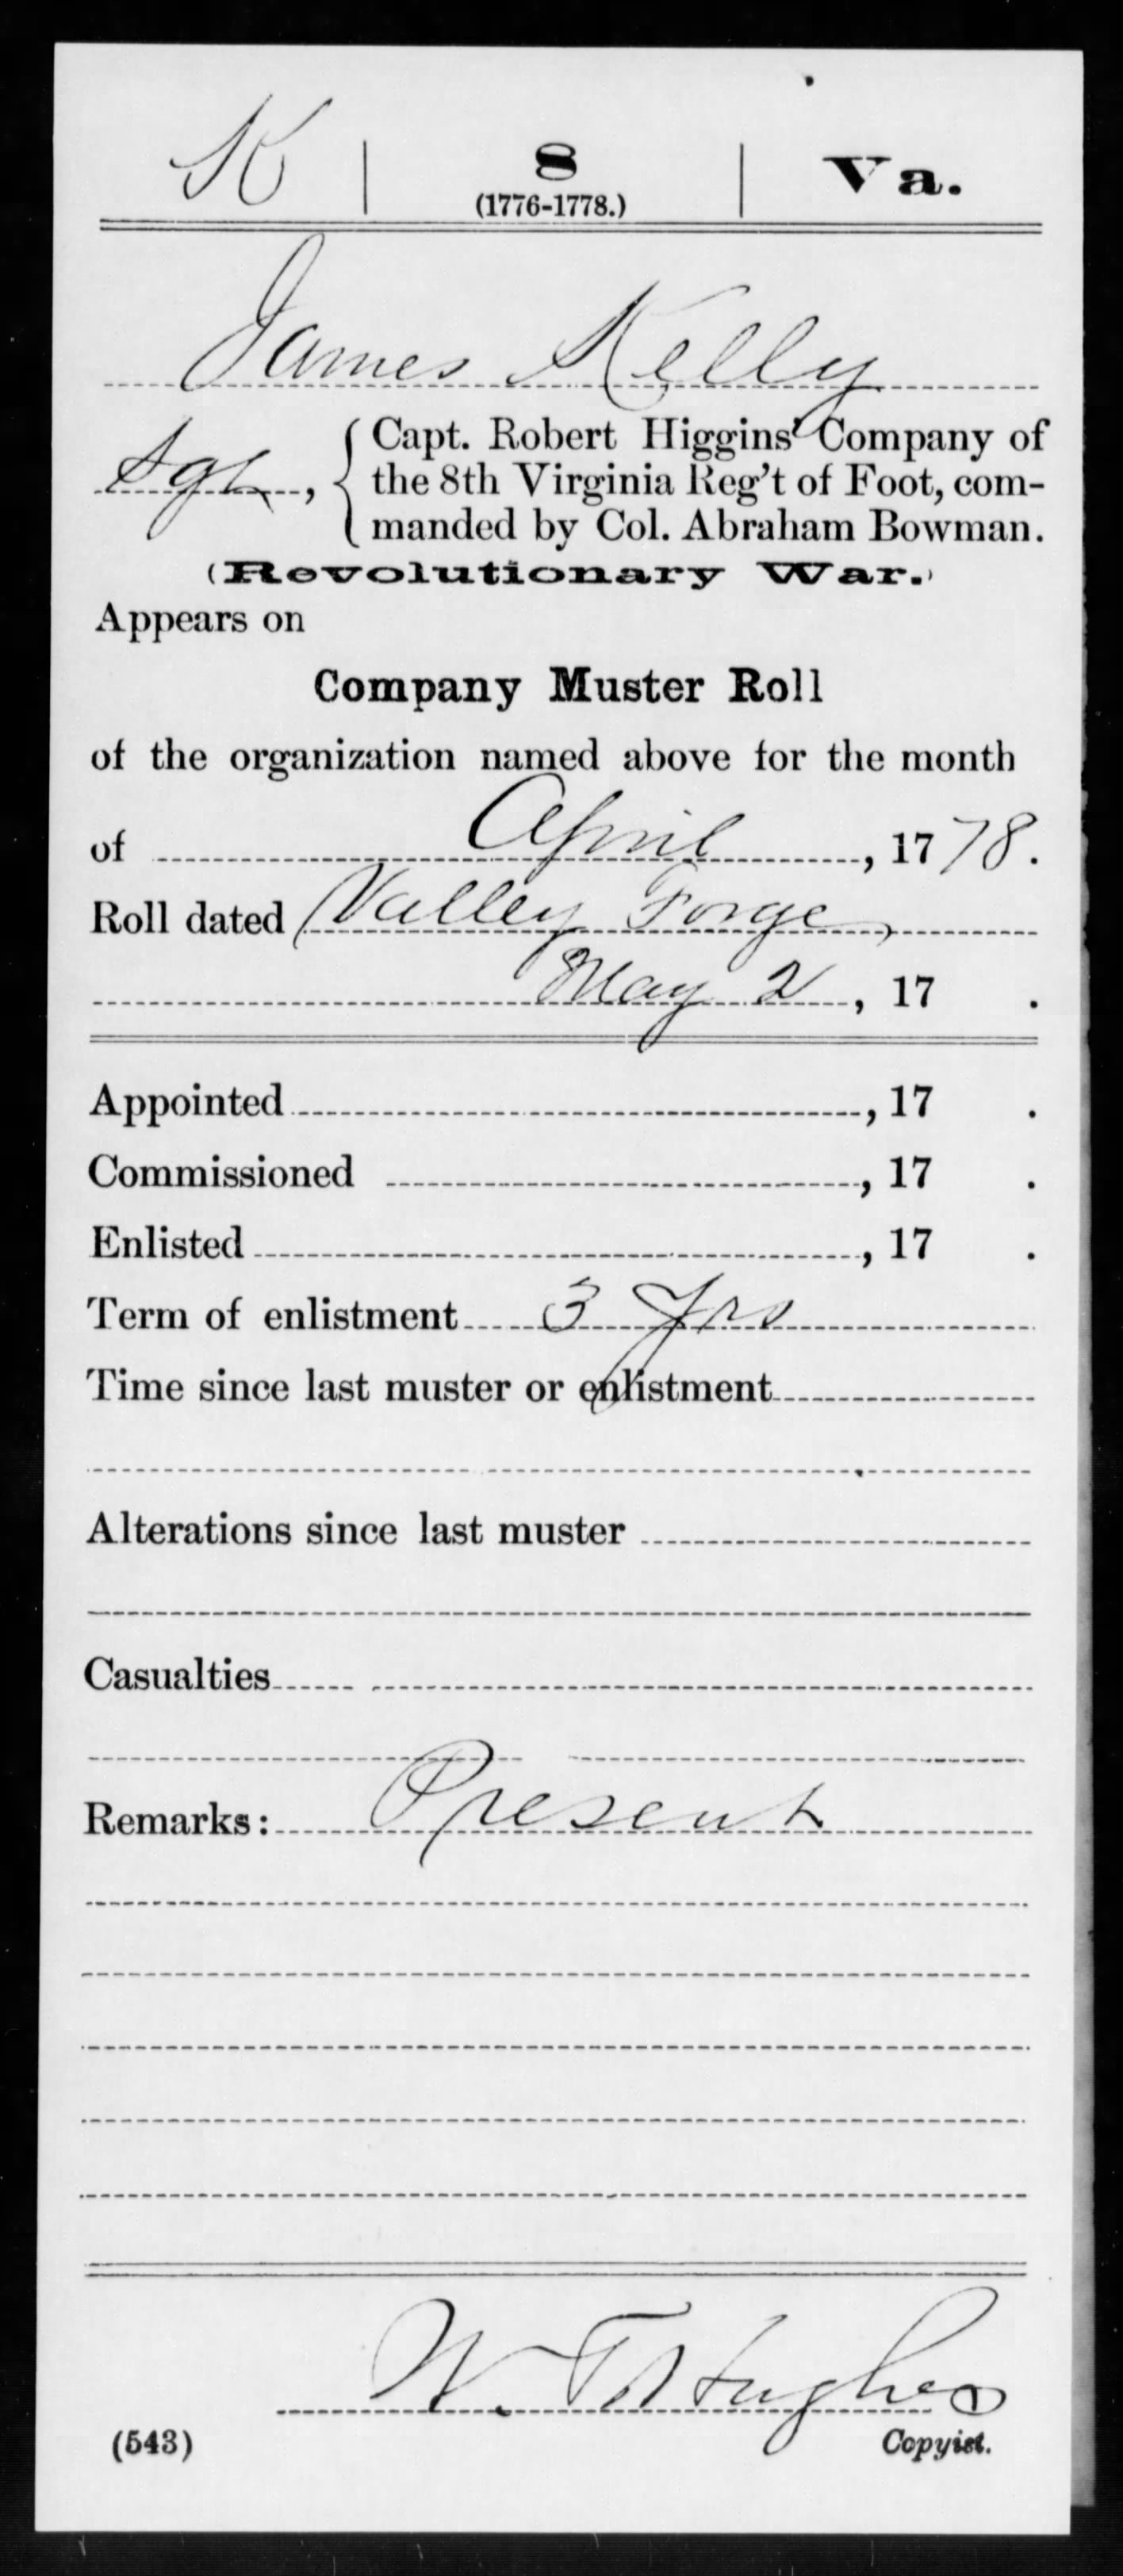 K | 8 | Va.
(1776-1778.)
James Kelly
Sgt, { Capt. Robert Higgins' Company of
the 8th Virginia Reg't of Foot, com-
manded by Col. Abraham Bowman.
(Revolutionary War.)
Appears on
Company Muster Roll
of the organization named above for the month
of April, 1778.
Roll dated Valley Forge,
May 2, 17 .
Appointed , 17 .
Commissioned , 17 .
Enlisted , 17 .
Term of enlistment 3 Yrs
Time since last muster or enlistment
Alterations since last muster
Casualties
Remarks: Present
W. T. Hughes
(543) Copyist.